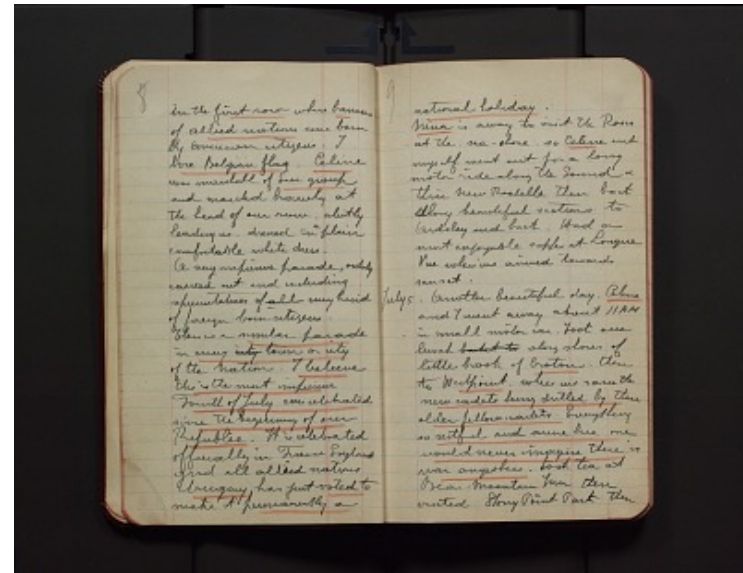 8
in the first row where banners
of allied nations were born
by American citizens. I
bore Belgian flag. Celine
was marshall of our group
and marched bravely at
the head of our row, alertly
leading us. dressed in plain
comfortable white dress.
A very impressive parade, orderly
carried out and including
representatives of all every kind
of foreign born citizens.
There is a similar parade
in every city town or city
of the Nation. I believe
this is the most impressive
Fourth of July ever celebrated
since the beginning of our
Republic. It is celebrated
officially in France England
and all allied nations
Uruguay has just voted to
make it permanently a
9
national holiday.
Nina is away to visit the
at the sea-shore. so Celine and
myself went out for a long
motor ride along the Sound &
thru New Rochelle then back
along beautiful sections to
Ardsley and back. Had a
most enjoyable supper at Longue
Vue where we arrived towards
sunset.
July 5. Another beautiful day. Celine
and I went away about 11 AM
in small motor car. Took our
lunch along shores of
little brook of Croton. then
to Westpoint where we saw the
new cadets being drilled by their
older fellow cadets. Everything
so restful and one
would never imagine there is
war anywhere. Took tea at
Bear Mountain Inn then
visited Stony Point Park then